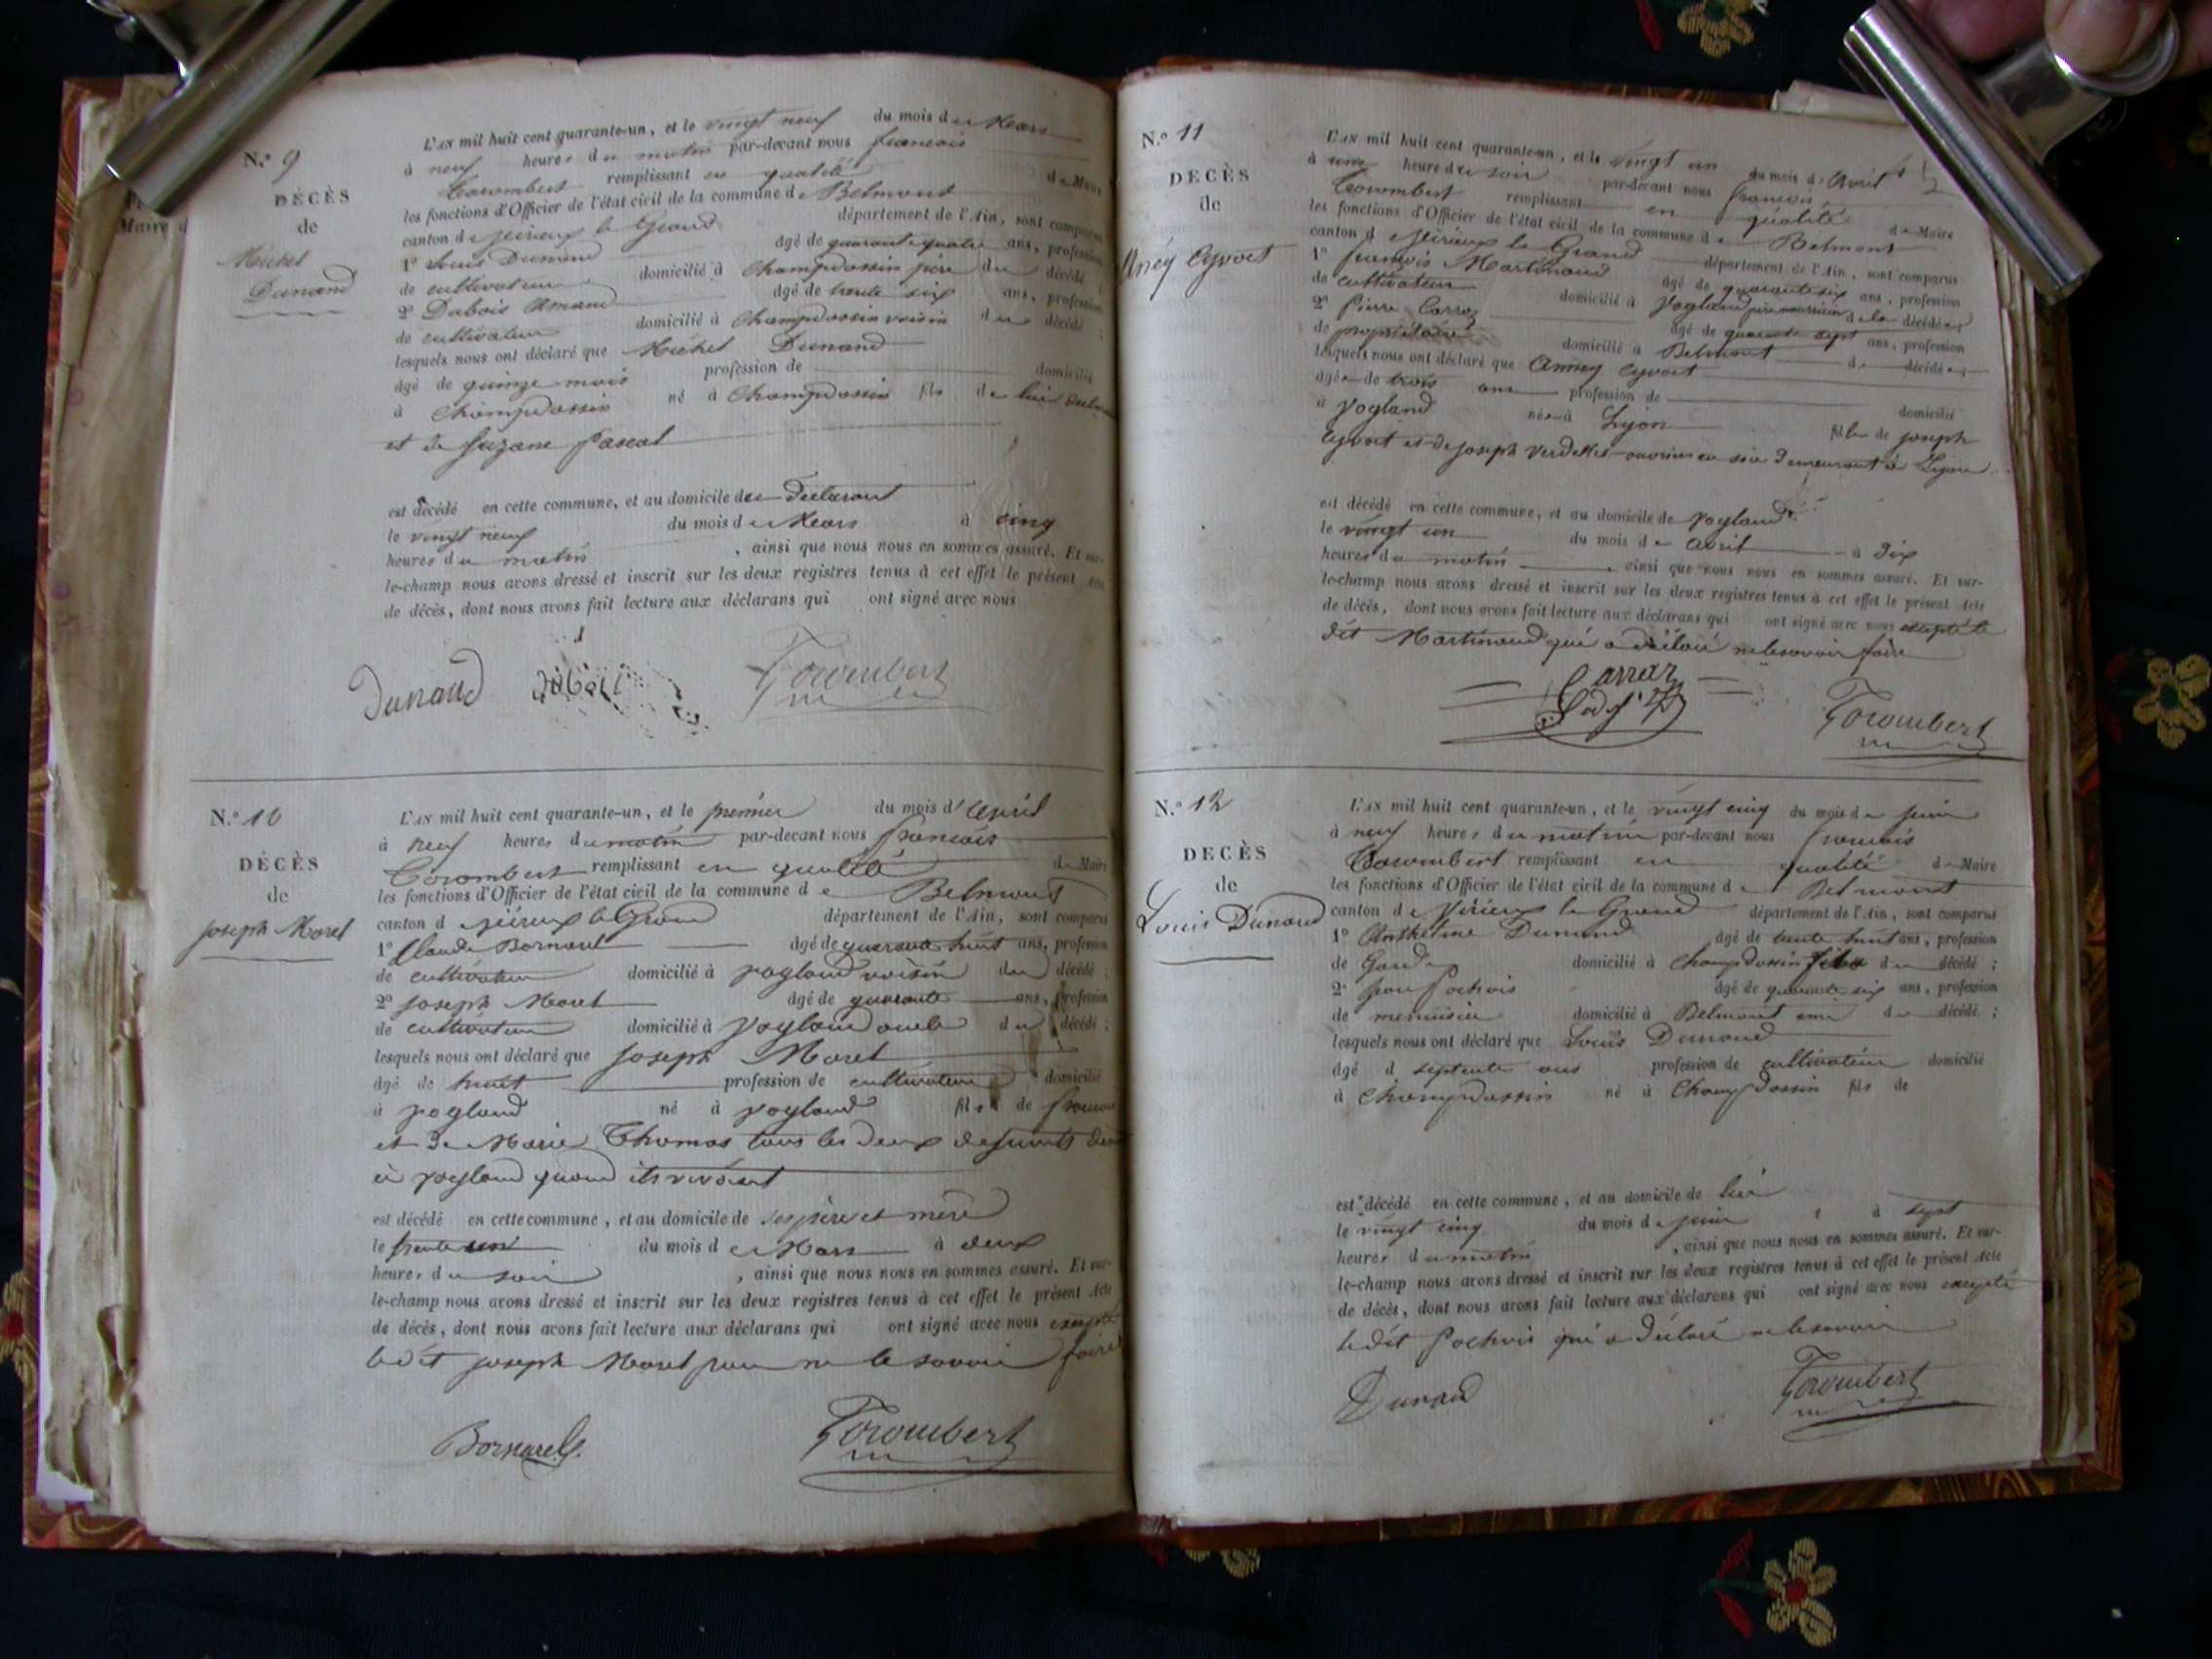 N.° 9
DÉCÈS
de
Michel
Dunand
L'AN mil huit cent quarante-un, et le vingt neuf du mois de Mars
à neuf heures du matin par-devant nous francois
Corombert remplissant en qualité de Maire
les fonctions d'Officier de l'état civil de la commune de Belmont
canton de Virieux le Grand département de l'Ain, sont comparus
1° Louis Dunand âgé de quarante quatre ans, profession
de cultivateur domicilié à Champdossin père du décédé ;
2° Dubois Amand âgé de trente six ans, profession
de cultivateur domicilié à Champdossin voisin du décédé ;
lesquels nous ont déclaré que Michel Dunand
âgé de quinze mois profession de domicilié
à Champdossin né à Champdossin fils de lui
et de Suzane Pascal
est décédé en cette commune, et au domicile du Déclarant
le vingt neuf du mois de Mars à cinq
heures du matin , ainsi que nous nous en sommes assuré. Et sur-
le-champ nous avons dressé et inscrit sur les deux registres tenus à cet effet le présent Acte
de décès, dont nous avons fait lecture aux déclarans qui ont signé avec nous
Dunand Dubois Corombert
N.° 10
DÉCÈS
de
Joseph Morel
L'AN mil huit cent quarante-un, et le premier du mois d'Avril
à neuf heures du matin par-devant nous francois
Corombert remplissant en qualité de Maire
les fonctions d'Officier de l'état civil de la commune de Belmont
canton de Virieux le Grand département de l'Ain, sont comparus
1° Claude Bornarel âgé de quarante huit ans, profession
de cultivateur domicilié à vogland voisin du décédé ;
2° Joseph Morel âgé de quarante ans, profession
de cultivateur domicilié à vogland oncle du décédé ;
lesquels nous ont déclaré que Joseph Morel
âgé de huit profession de cultivateur domicilié
à vogland né à vogland fils de
et de Marie Thomas tous les deux defunts
à vogland quand ils vivaient
est décédé en cette commune, et au domicile de ses père et mère
le trente un du mois de Mars à deux
heures du soir , ainsi que nous nous en sommes assuré. Et sur-
le-champ nous avons dressé et inscrit sur les deux registres tenus à cet effet le présent Acte
de décès, dont nous avons fait lecture aux déclarans qui ont signé avec nous excepté
le dit joseph Morel pour ne le savoir faire
Bornarel Corombert
N.° 11
DECÈS
de
Anéy Eyvoet
L'AN mil huit cent quarante-un, et le vingt un du mois d'Avril
à une heure du soir par-devant nous françois
Corombert remplissant en qualité de Maire
les fonctions d'Officier de l'état civil de la commune de Belmont
canton de Virieux le Grand département de l'Ain, sont comparus
1° françois Martinand âgé de quarante six ans, profession
de cultivateur domicilié à Vogland père nourricier de la décédée ;
2° Pierre Carraz âgé de quarante sept ans, profession
de propriétaire domicilié à Belmont de décédé ;
lesquels nous ont déclaré que Anney Eyvoet
âgée de trois ans profession de domicilié
à Vogland née à Lyon fille de joseph
Eyvoet et de joseph ouvriers en soie demeurant à Lyon
est décédé en cette commune, et au domicile de vogland
le vingt un du mois de Avril à dix
heures du matin , ainsi que nous nous en sommes assuré. Et sur-
le-champ nous avons dressé et inscrit sur les deux registres tenus à cet effet le présent Acte
de décès, dont nous avons fait lecture aux déclarans qui ont signé avec nous excepté le
dit Martinand qui a déclaré ne le savoir faire
Carraz
Corombert
N.° 12
DECÈS
de
Louis Dunand
L'AN mil huit cent quarante-un, et le vingt cinq du mois de juin
à neuf heures du matin par-devant nous francois
Corombert remplissant en qualité de Maire
les fonctions d'Officier de l'état civil de la commune de Belmont
canton de Virieux le Grand département de l'Ain, sont comparus
1° Anthelme Dunand âgé de trente huit ans, profession
de Garde domicilié à Champdossin fils du décédé ;
2° Jean Pochois âgé de quarante six ans, profession
de menuisier domicilié à Belmont ami du décédé ;
lesquels nous ont déclaré que Louis Dunand
âgé d septente ans profession de cultivateur domicilié
à Champdossin né à Champdossin fils de
est décédé en cette commune, et au domicile de lui
le vingt cinq du mois de juin à sept
heures du matin , ainsi que nous nous en sommes assuré. Et sur-
le-champ nous avons dressé et inscrit sur les deux registres tenus à cet effet le présent Acte
de décès, dont nous avons fait lecture aux déclarans qui ont signé avec nous excepté
le dit Pochois qui a déclaré ne le savoir
Dunand Corombert